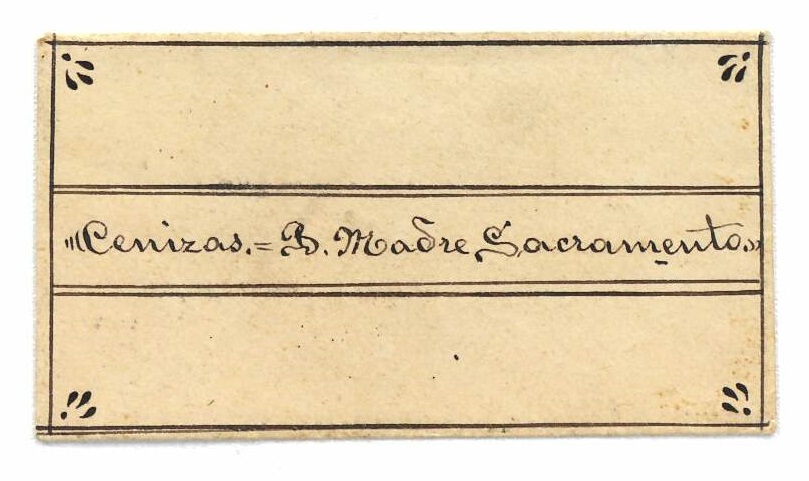 "Cenizas.= B. Madre Sacramento."